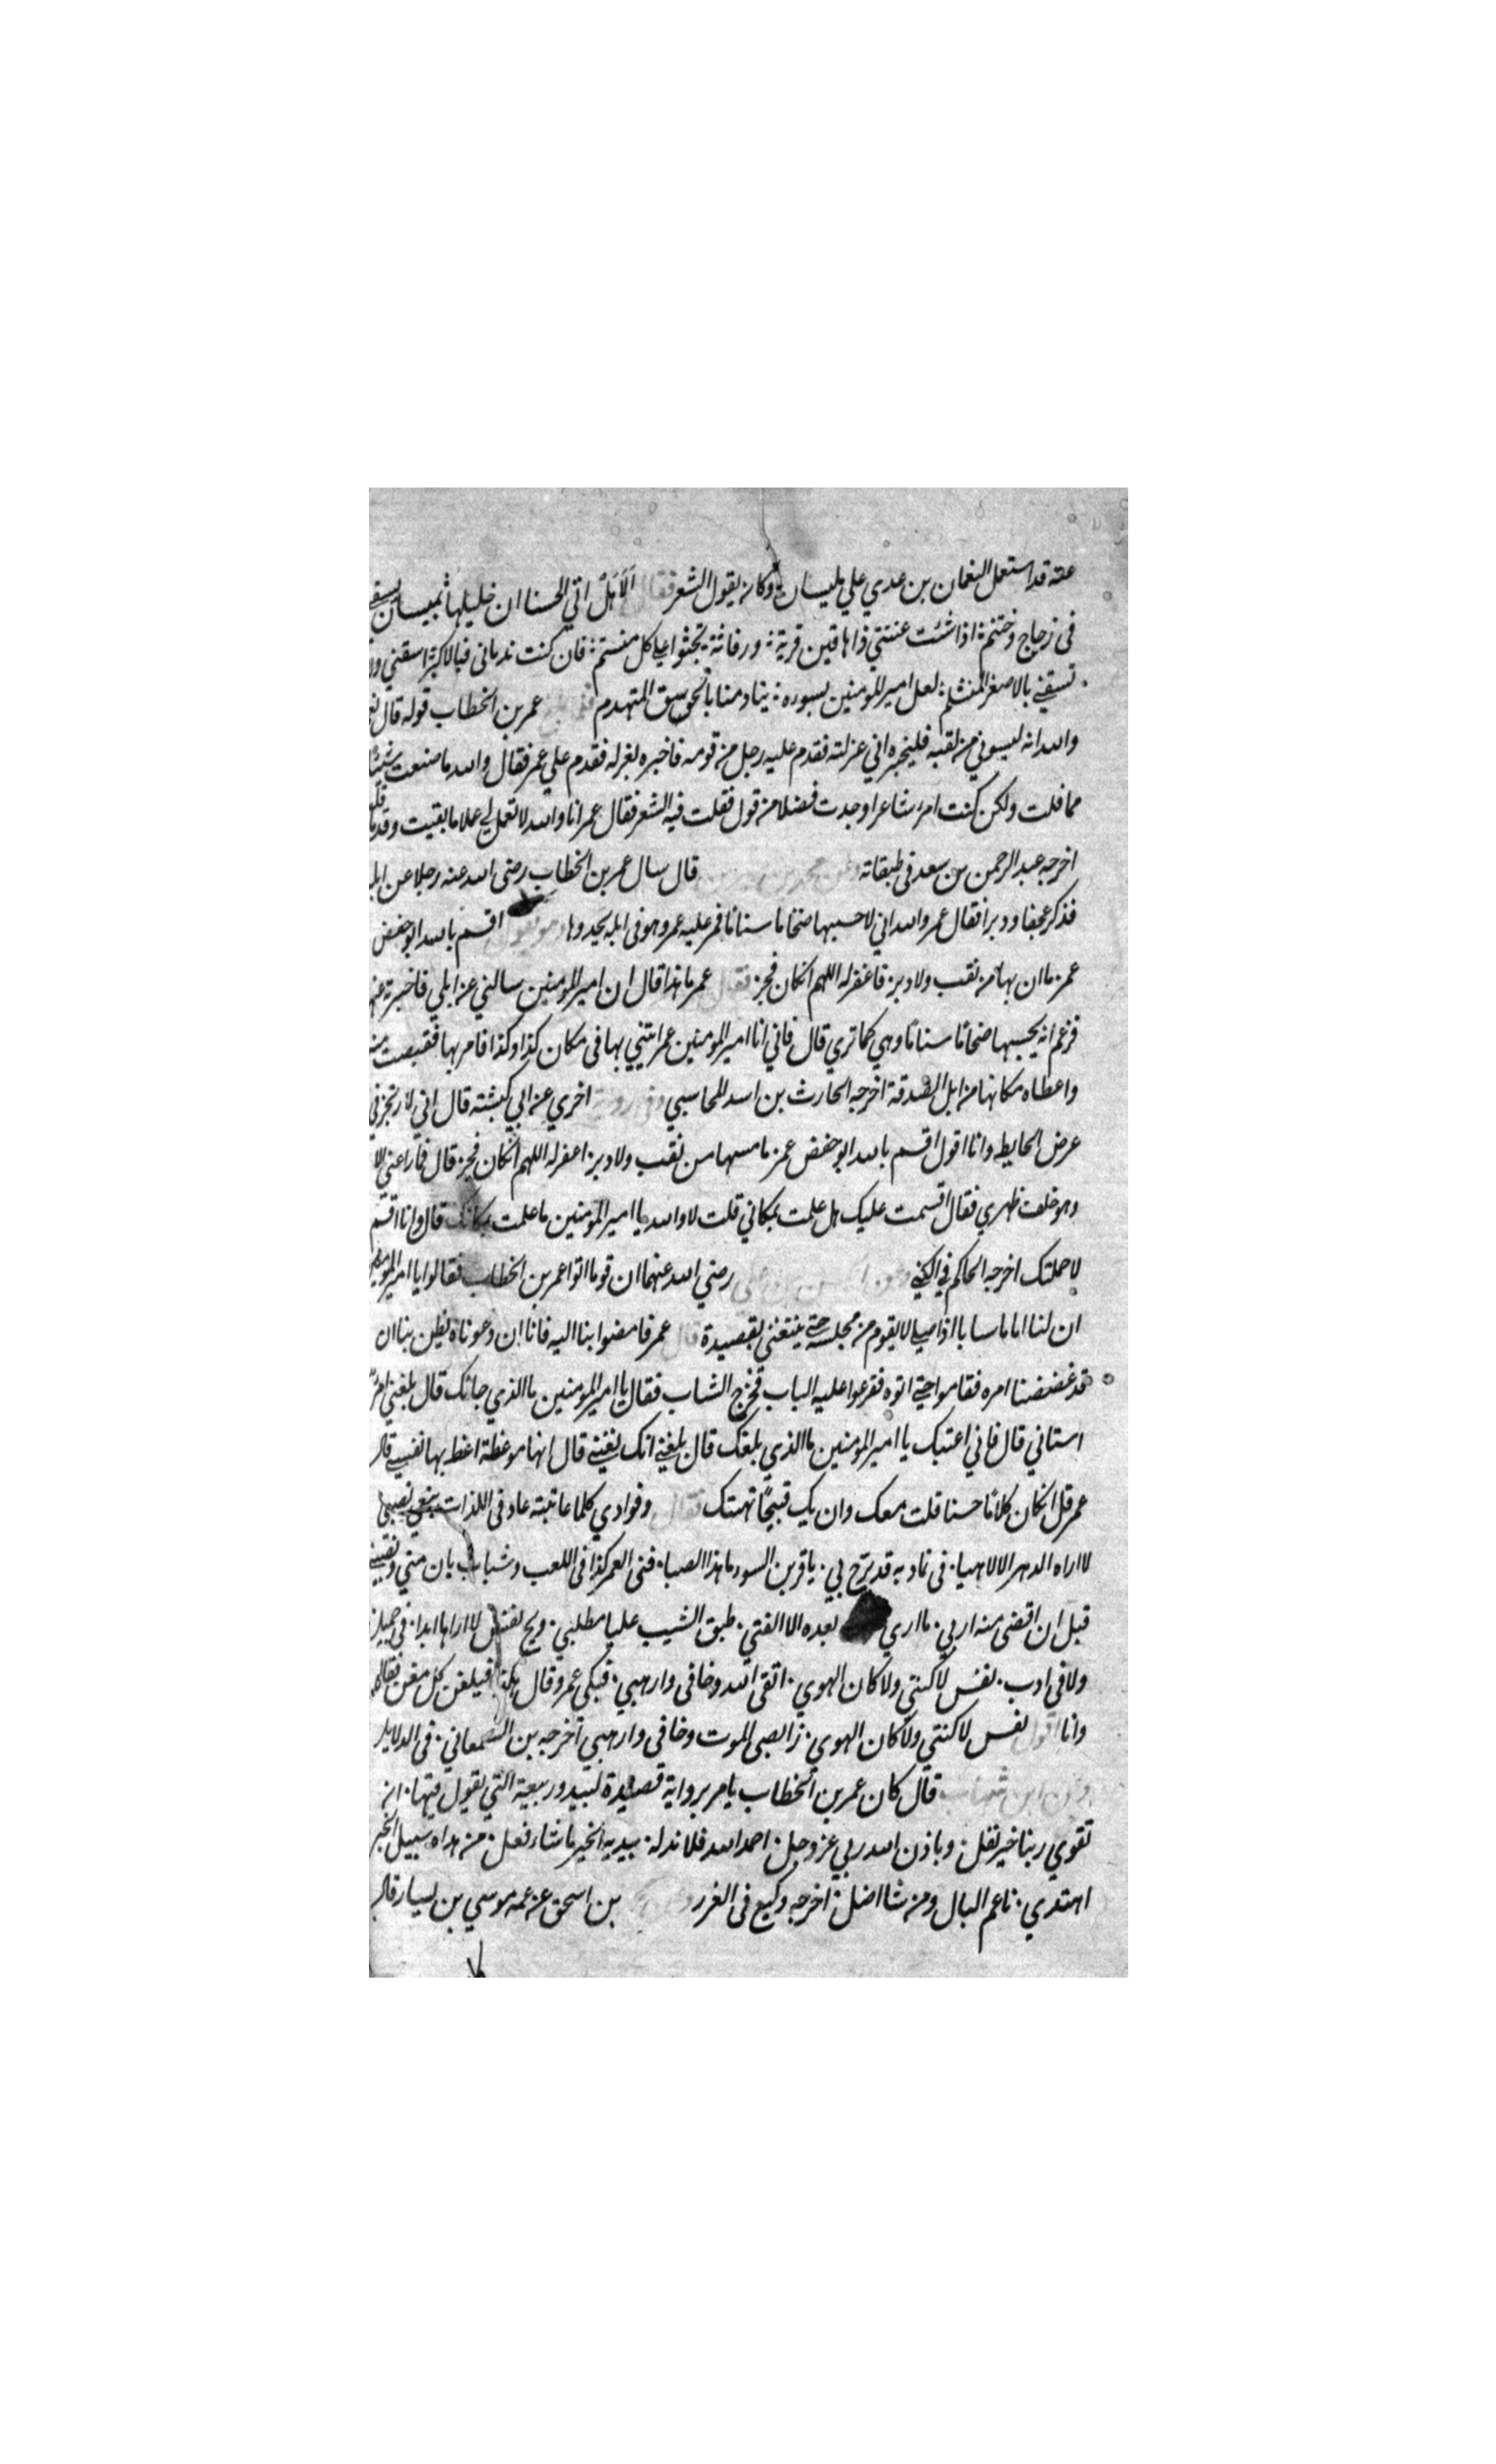 عنه قد استعمل النعمان بن عدي علي مليسان وكان يقول الشعر فقال الاهل اتي الحسنا ان خليلها بميسان يسقي
في زجاج وختنم اذا شئت عنتني ذاهاقين قرية ورفاثة تجثوا علي كل منستم فان كنت ندماني فبالاكبر اسقني ولا
تسقني بالاصغر المنثلم لعل امير المومنين يسوره ينادمنا بالجوسق المتهدم فلما بلغ عمر بن الخطاب قوله قال
والله انه ليسوني من لقيه فليخبره اني عزلته فقدم عليه رجل من قومه فاخبره بعزله فقدم علي عمر فقال والله ما صنعت شيئا
مما قلت ولكن كنت امرء شاعرا وجدت فضلا من قول فقلت فيه الشعر فقال عمر انا والله لا تعمل لي عملا ما بقيت وقد قلت
اخرجه عبد الرحمن بن سعد في طبقاته وعن محمد بن سيرين قال سال عمر بن الخطاب رضي الله عنه رجلا عن ابل
فذكر عجفا ودبرا فقال عمر والله اني لاحسبها ضخاما سنانا فمر عليه عمر وهو في ابله يحدوها وهو يقول اقسم بالله ابو حفض
عمر ما ان بها من نقب ولا دبر فاغفر له اللهم ان كان فجر فقال عمر ما هذا قال ان امير المومنين سالني عن ابلي فاخبرته عنها
فزعم انه يحسبها ضخامًا سنانًا وهي كما تري قال فاني انا امير المومنين عمر ايتني بها في مكان كذا وكذا فامر بها فقبضت منه
واعطاه مكانها من ابل الصدقة اخرجه الحارث بن اسد المحاسبي وفي رواية اخري عن ابي كبشته قال اني لارتجز في
عرض الحايط وانا اقول اقسم بالله ابو حفض عمر ما مسها من نقب ولا دبر اغفر له اللهم ان كان فجر قال فما راعني الا
وهو خلف ظهري فقال اقسمت عليك هل علمت بمكاني قلت لا والله يا امير المومنين ما علمت بمكانك قال وانا اقسم
لاحملنك اخرجه الحاكم في الكني وعن الحسين بن علي رضي الله عنهما ان قوما اتوا عمر بن الخطاب فقالوا يا امير المومنين
ان لنا اماما سابا اذا صلي لا يقوم من مجلسه حتي يتغني بقصيدة قال عمر فامضوا بنا اليه فانا ان دعوناه يظن بنا ان
قد غضضنا امره فقاموا حتي اتوه فقرعوا عليه الباب فخرج الشاب فقال يا امير المومنين ما الذي جا بك قال بلغني امر
استاني قال فاني اعتبك يا امير المومنين ما الذي بلغك قال بلغني انك تغني قال انها موعظة اعظ بها نفسي قال
عمر قل ان كان كلامًا حسنا قلت معك وان يك قبيحًا نهيتك فقال وفوادي كلما عاتبته عاد في اللذات يبغي نصبي
لا اراه الدهر الا لاهيا في تماديه قد برح بي يا قرين السوء ما هذا الصبا فني العمر كذا في اللعب وشباب بان مني ونقضي
قبل ان اقضي منه اربي ما اري بعده الا الفتي طبق الشيب عليا مطلبي ويح نفسي لا اراها ابدا في جميل
ولا في ادب نفس لا كنتي ولا كان الهوي اتقي الله وخافي وارهبي فبكي عمر وقال هكذا فليغن كل مغن فقال عمر
وانا اقول نفس لا كنتي ولا كان الهوي راقبي الموت وخافي وارهبي اخرجه بن السمعاني في الدلايل
وعن ابن شهاب قال كان عمر بن الخطاب يامر برواية قصيدة لبيد وربيعة التي يقول فيها ان
تقوي ربنا خير نفل وباذن الله ربي عز وجل احمد الله فلا ند له بيديه الخير ما شاء فعل من هداه سبيل الخير
اهتدي ناعم البال ومن شا اضل اخرجه وكيع في الغرر وعن بن اسحق عن عمه موسي بن يسار قال